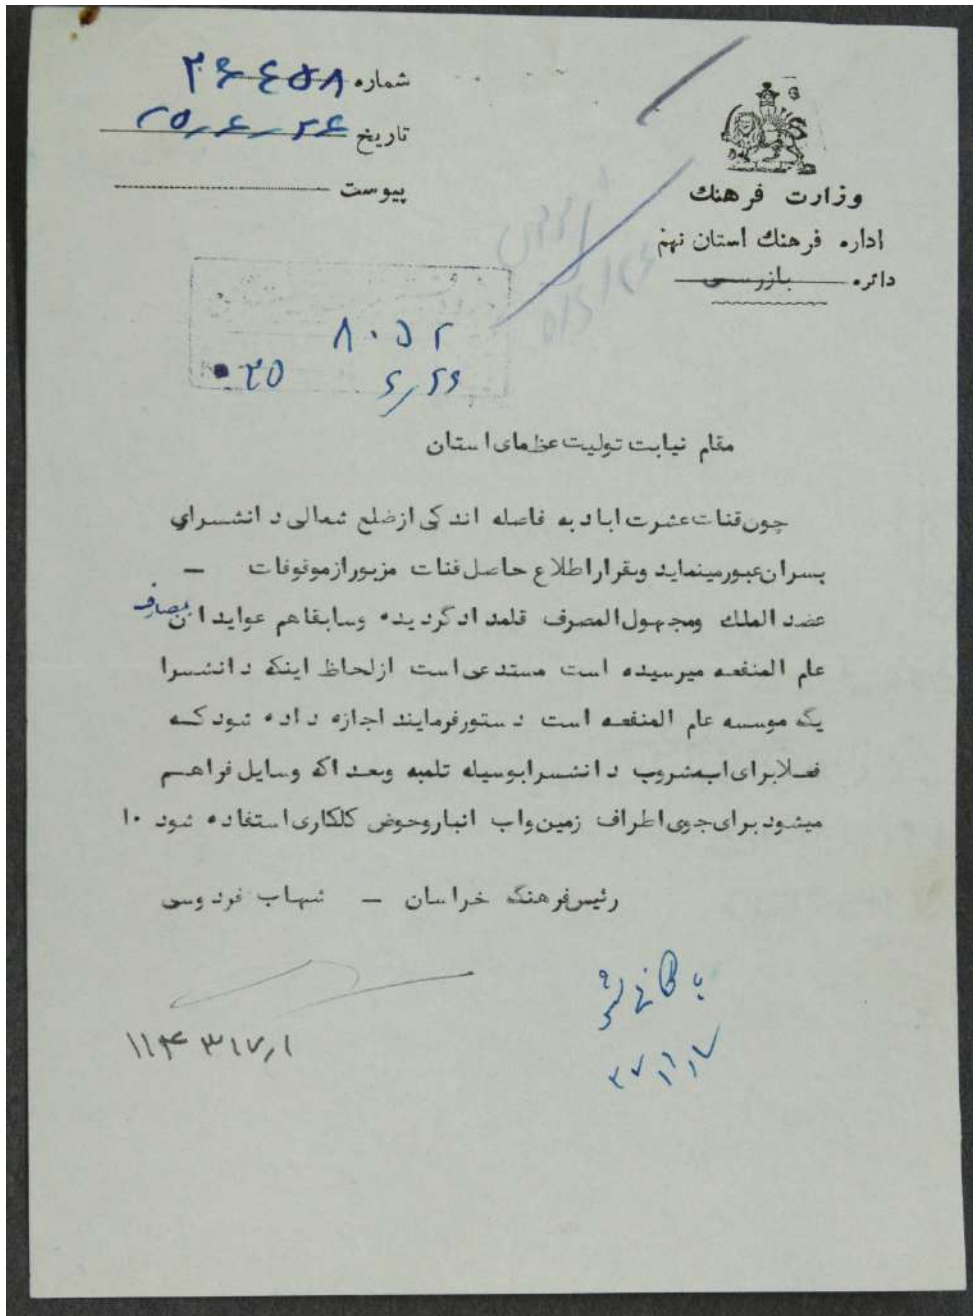 وزارت فرهنك
اداره فرهنك استان نهم
دائره بازرسی
شماره ۲۶۴۵۸
تاریخ ۲۵٫۶٫۲۴
پیوست
۸۰۵۲
۶/۲۶ ۲۵
مقام نیابت تولیت عظمای استان
چون قنات عشرت اباد به فاصله اندکی از ضلع شمالی دانشسرای
پسران عبور مینماید وبقرار اطلاع حاصل قنات مزبور از موقوفات –
عضد الملك ومجهول المصرف قلمداد گردیده وسابقاهم عواید ان بمصارف
عام المنفعه میرسیده است مستدعی است از لحاظ اینکه دانشسرا
یک موسسه عام المنفعه است دستور فرمایند اجازه داده شود که
فعلا برای اب مشروب دانشسرا بوسیله تلمبه وبعد اکه وسایل فراهم
میشود برای جوی اطراف زمین واب انبار وحوض کلکاری استفاده شود ۱۰
رئیس فرهنگ خراسان – شهاب فردوسی